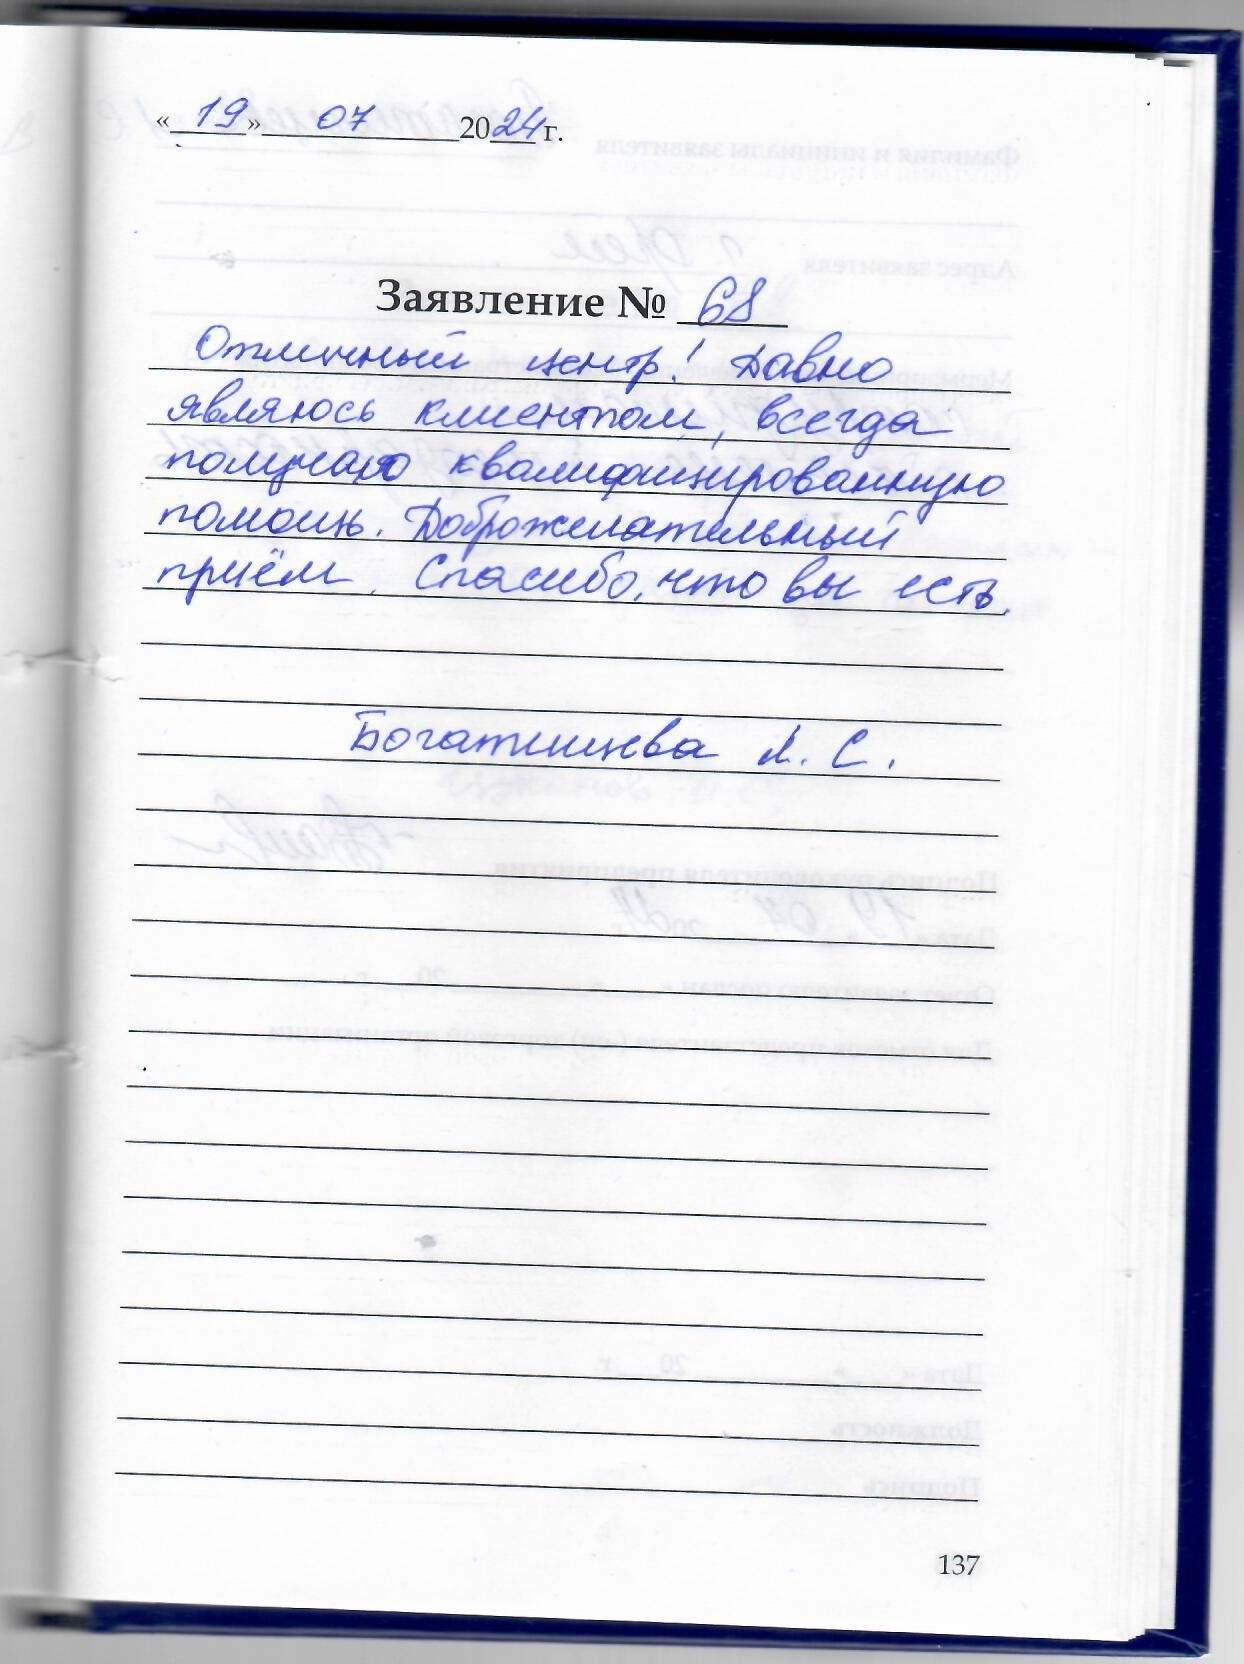 «19» 07 2024 г.
Заявление № 68
Отличный центр! Давно
являюсь клиентом, всегда
получаю квалифицированную
помощь. Доброжелательный
приём. Спасибо, что вы есть.
Л. С.
137